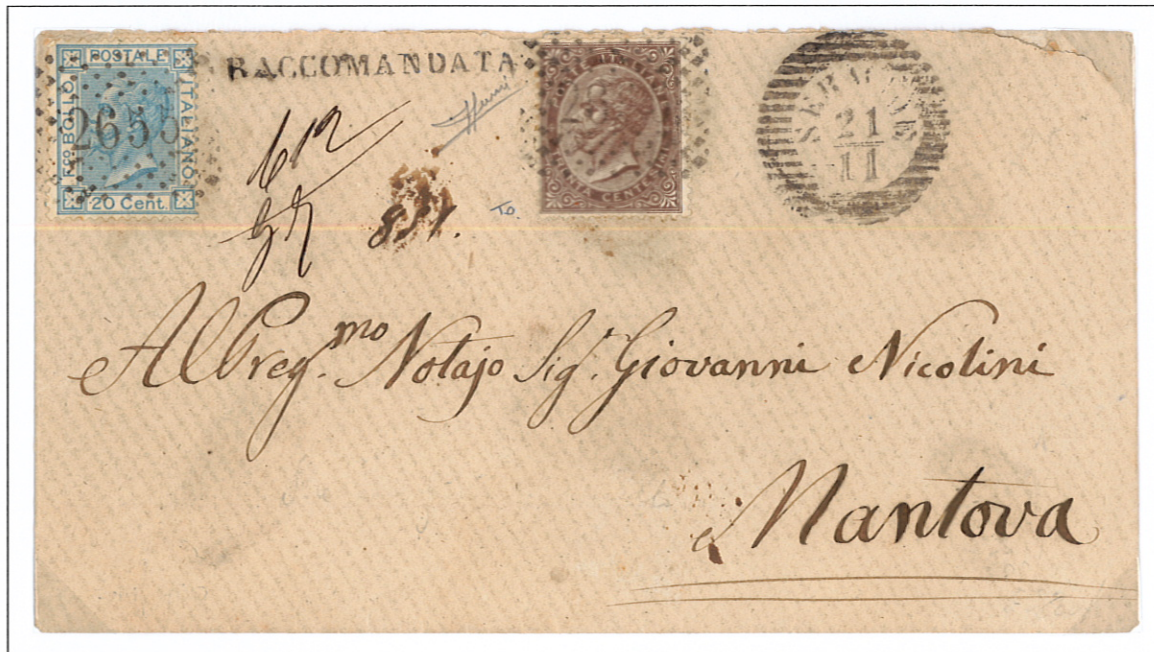 POSTALE
Fco BOLLO
ITALIANO
20 Cent.
265
RACCOMANDATA
POSTE ITALIANE
TRENTA CENT
To.
831.
SERMIDE
21
11
Al Preg.mo Notajo Sig.r Giovanni Nicolini
Mantova